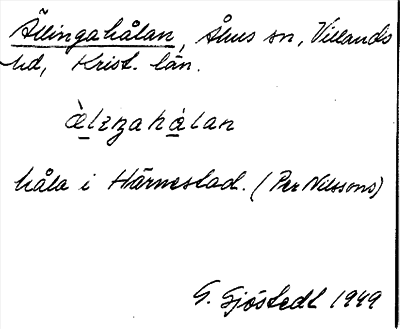 Ålingahålan, Åhus sn, Villands
hd, Krist. län.
àlıŋahálan
håla i Härnestad. (Per Nilssons)
G. Sjöstedt 1949